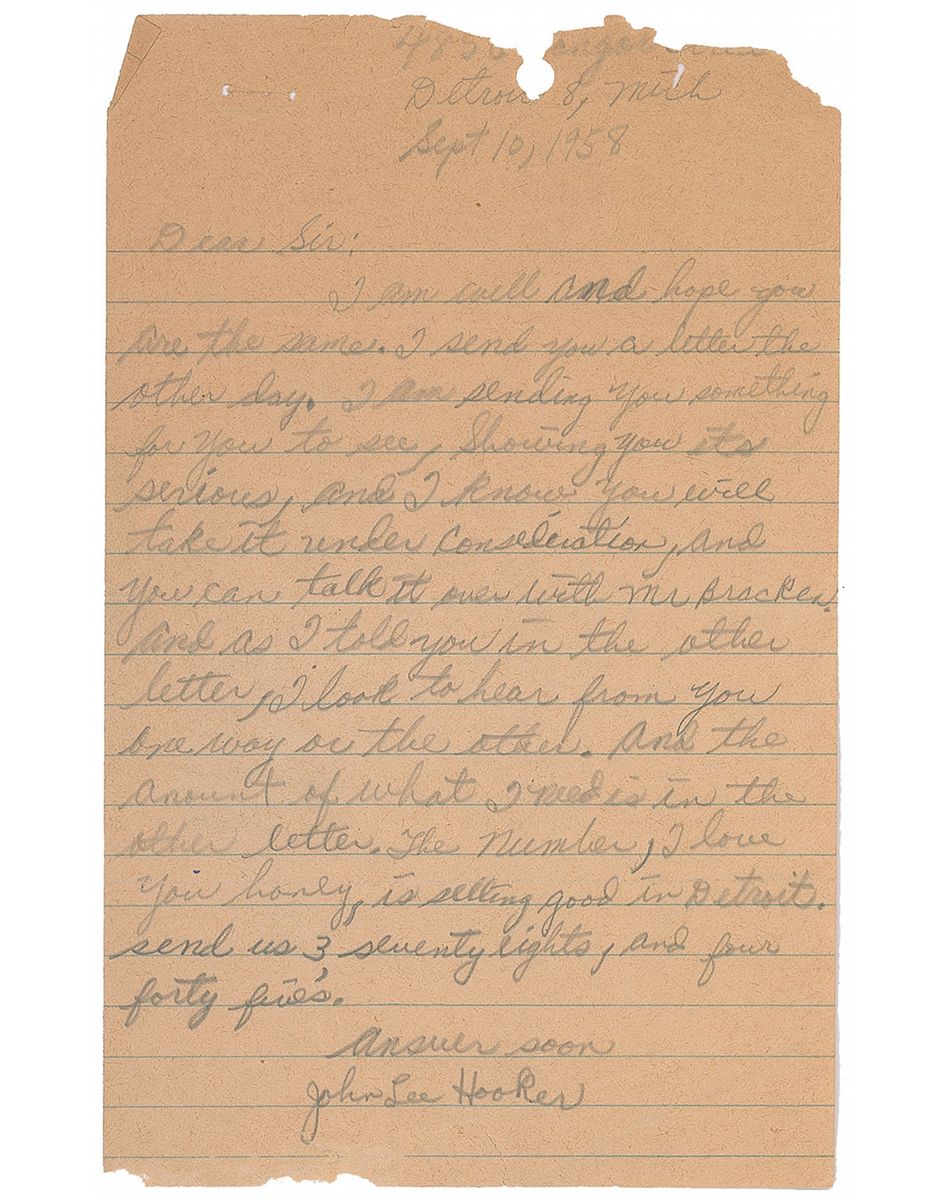 Detroit 8, Mich
Sept 10, 1958
Dear Sir:
I am well and hope you
are the same. I send you a letter the
other day. I am sending you something
for you to see, Showing you its
serious, and I know you will
take it under consideration, and
you can talk it over with Mr Bracken.
And as I told you in the other
letter, I look to hear from you
one way or the other. And the
amount of what I need is in the
other letter. The Number, I love
you honey, is selling good in Detroit.
send us 3 seventy eights, and four
forty five's.
Answer soon
John Lee Hooker